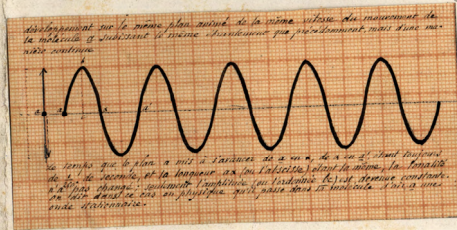 développement sur le même plan animé de la même vitesse du mouvement de
la molécule a subissant le même que précédemment, mais d'une ma-
nière continue
le temps que le plan a mis à l'avancer de a en a, de a en a' étant toujours
de de seconde, et la longueur aa' (ou l'abscisse) étant la même, la tonalité
n'a pas changé; seulement l'amplitude (ou l'ordonnée bc) est devenue constante.
on fait dans le cas en physique qu'il passe dans la molécule d'air a une
onde stationnaire.